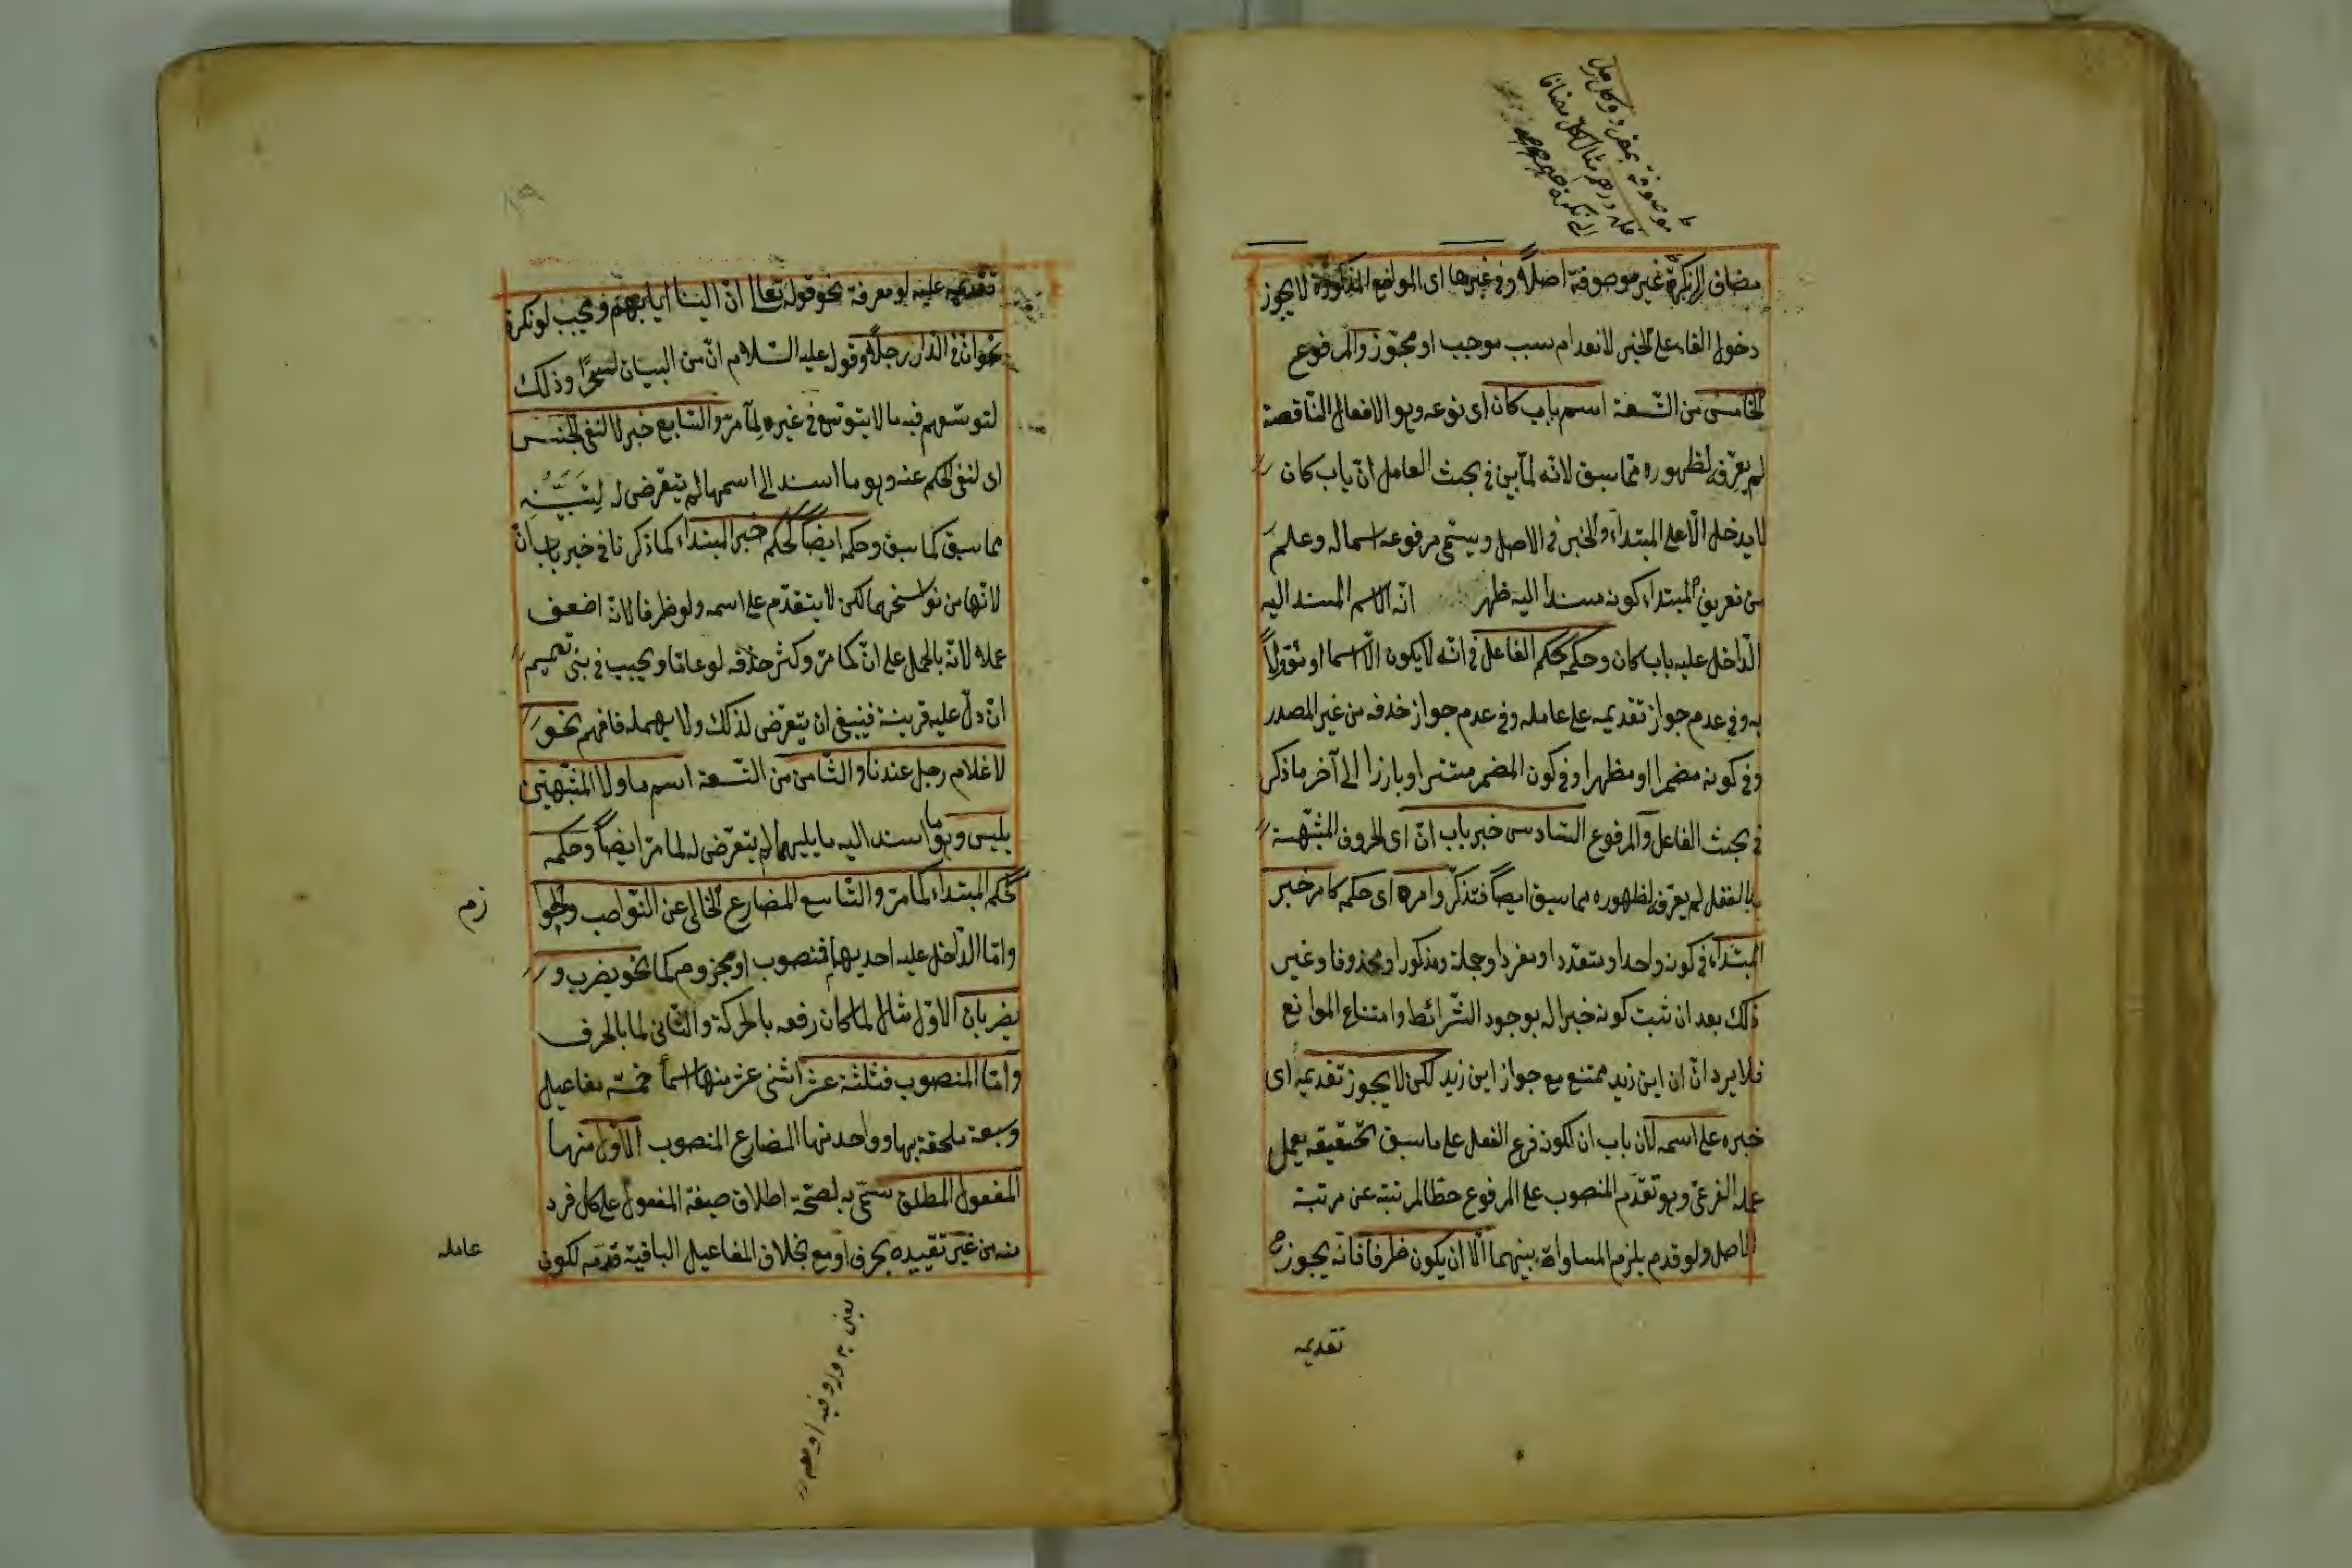 مضاف الى نكرة غير موصوفة اصلا وفي غيرها اى المواضع المذكورة لا يجوز
دخول الفاء على الخبر لانعدام سبب موجب او مجوّز والمرفوع
الخامس من التّسعة اسم باب كان اى نوعه وهو الافعال النّاقصة
لم يعرّفه لظهوره ممّا سبق لانّه لمّا بيّن في بحث العامل انّ باب كان
لا يدخل الّا على المبتداء والخبر في الاصل ويسمّى مرفوعه اسما له وعلم
من تعريف المبتداء كونه مسندا اليه ظهر انّه الاسم المسند اليه
الدّاخل عليه باب كان وحكمه كحكم الفاعل في انّه لا يكون الّا اسما او مؤوّلاً
به وفي عدم جواز تقديمه على عامله وفي عدم جواز حذفه من غير المصدر
وفي كونه مضمرا او مظهرا وفي كون المضمر مستترا او بارزا الى آخر ما ذكر
في بحث الفاعل والمرفوع السّادس خبر باب انّ اى الحروف المشبّهة
بالفعل لم يعرّفه لظهوره مما سبق ايضاً فتذكّر وامره اى حكمه كامر خبر
المبتداء في كونه واحدا ومتعدّدا ومفردا وجملة ومذكورا ومحذوفا وغير
ذلك بعد ان ثبت كونه خبرا له بوجود الشّرائط وامتناع الموانع
فلا يرد انّ ان اين زيد ممتنع مع جواز اين زيد لكن لا يجوز تقديمه اى
خبره على اسمه لان باب ان لكونه فرع الفعل على ما سبق تحقيقه يعمل
عمله الفرعىّ وهو تقدّم المنصوب على المرفوع حطّا لمرتبته عن مرتبة
الاصل ولو قدم يلزم المساواة بينهما الّا ان يكون ظرفا فانّه يجوز ح
تقديمه
تقديمه عليه لو معرفة نحو قوله تعالى انّ الينا ايابهم ويجب لو نكرة
نحو انّ في الدّار رجلاً وقوله عليه السّلام انّ من البيان لسحرًا وذلك
لتوسّعهم فيه ما لا يتوسّع في غيره لما مرّ والسّابع خبر لا لنفى الجنس
اى لنفى الحكم عنه وهو ما اسند الى اسمها لم يتعرّض له لِتَبَيُّنِهِ
مما سبق كما سبق وحكمه ايضاً كحكم خبر المبتداء كما ذكرنا في خبر باب انّ
لانّها من نواسخهما لكن لا يتقدّم على اسمه ولو ظرفا لانّه اضعف
عملا لانّه بالحمل على انّ كما مرّ وكثر حذفه لو عامّا ويجب في بنى تميم
ان دلّ عليه قرينة فينبغى ان يتعرّض لذلك ولا يهمله فافهم نحو
لا غلام رجل عندنا والثّامن من التّسعة اسم ما ولا المشبّهتين
بليس وهو ما اسند اليه ما يليهما لم يتعرّض له لما مرّ ايضاً وحكمه
كحكم المبتداء لما مرّ والتّاسع المضارع الخالى عن النّواصب والجوا
زم
وامّا الدّاخل عليه احديهما فمنصوب او مجزوم كما نحو يضرب و
يضربان الاوّل مثال لما كان رفعه بالحركة والثّانى لما بالحرف
وامّا المنصوب فثلثة عشر اثنى عشر منها اسماً خمسة مفاعيل
وسبعة ملحقة بها وواحد منها المضارع المنصوب الاوّل منها
المفعول المطلق سمّى به لصحّة اطلاق صيغة المفعول على كل فرد
منه من غير تقييده بحرف او مع بخلاف المفاعيل الباقية قدّمه لكون
عامله